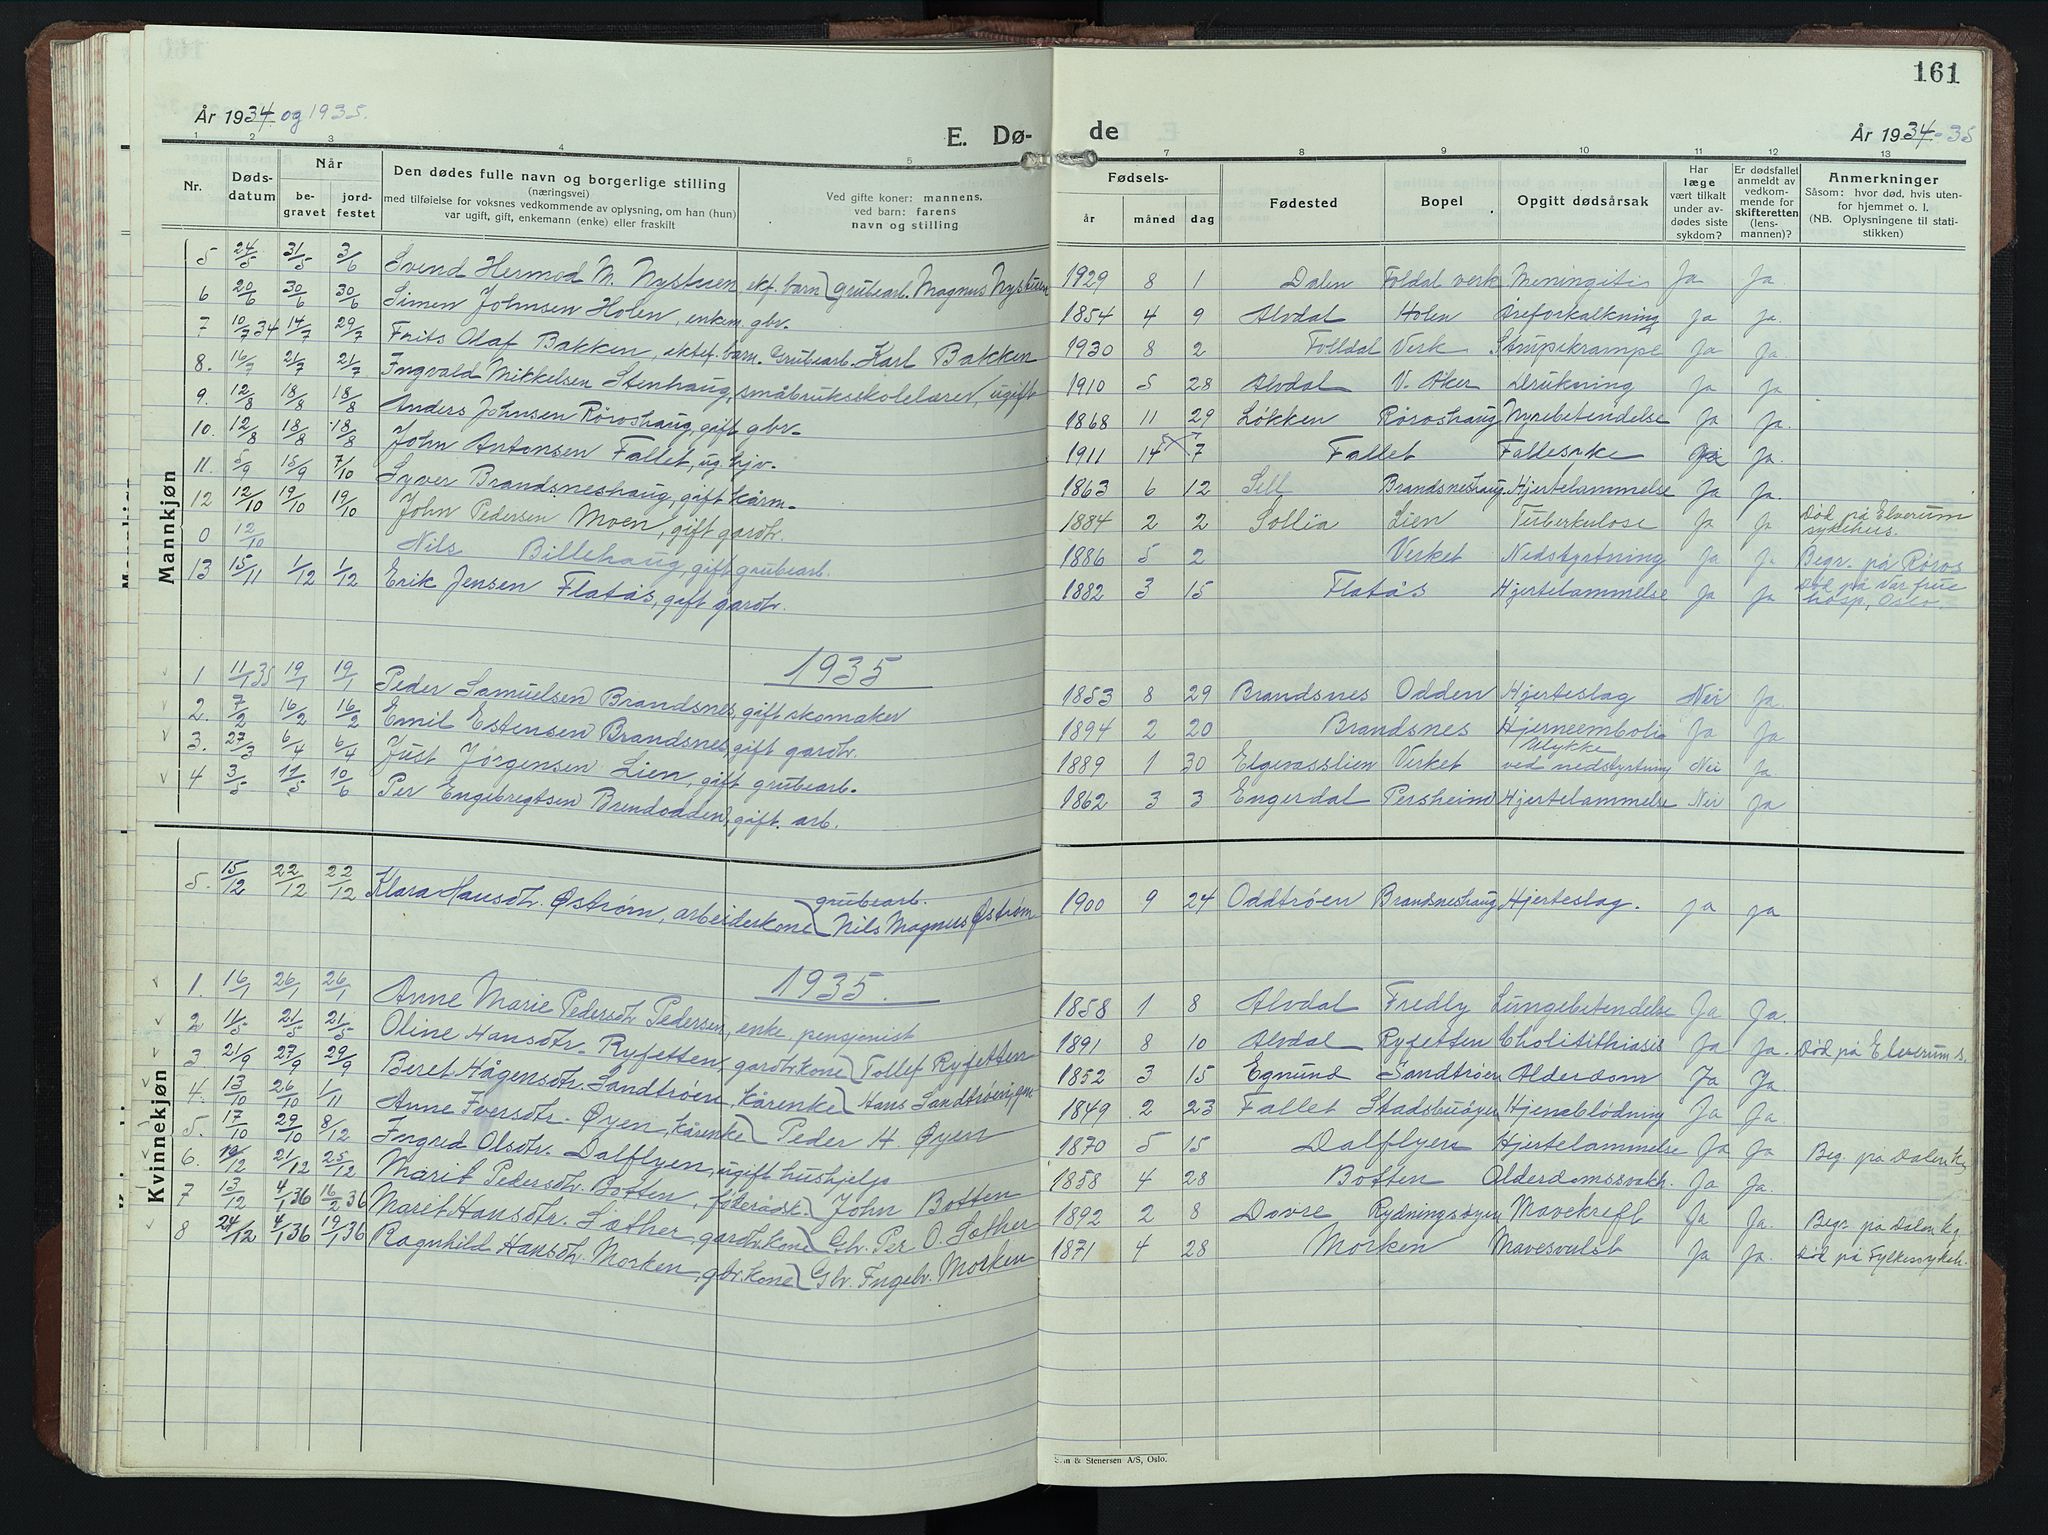 161
År 1934 og 1935.
E. Dø-
de
År 1934-35
1 2 3 4 5 7 8 9 10 11 12 13
Nr.
Døds-
datum
Når
be-
gravet
jord-
festet
Den dødes fulle navn og borgerlige stilling
(næringsvei)
med tilføielse for voksnes vedkommende av oplysning, om han (hun)
var ugift, gift, enkemann (enke) eller fraskilt
Ved gifte koner: mannens,
ved barn: farens
navn og stilling
Fødsels-
år måned dag
Fødested
Bopel
Opgitt dødsårsak
Har
læge
vært tilkalt
under av-
dødes siste
sykdom?
Er dødsfallet
anmeldt av
vedkom-
mende for
skifteretten
(lens-
mannen)?
Anmerkninger
Såsom: hvor død, hvis uten-
for hjemmet o. l.
(NB. Oplysningene til stati-
stikken)
Mannkjøn
5 24/5 31/5 3/6 Svend Hermod M. Nystuen ekt. barn grubearb. Magnus Nystuen 1929 8 1 Dalen Foldal verk Meningitis Ja Ja
6 20/6 30/6 30/6 Simen Johnsen Holen, enkem. gbr. 1854 4 9 Alvdal Holen Åreforkalkning Ja Ja.
7 10/7 34 14/7 29/7 Frits Olaf Bakken, ektef. barn. Grubearb. Karl Bakken 1930 8 2 Folldal Verk Strupekrampe Ja Ja.
8. 16/7 21/7 21/7 Ingvald Mikkelsen Stenhaug, småbruksskolelærer, ugift 1910 5 28 Alvdal V. Aker Drukning Ja Ja
9. 12/8 18/8 18/8 Anders Johnsen Røroshaug, gift gbr. 1868 11 29 Løkken Røroshaug Nyrebetendelse Ja Ja.
10. 12/8 18/8 18/8 John Antonsen Fallet, ug. hjv. 1911 14 5 7 Fallet Fallesyke Ja Ja.
11. 5/9 15/9 7/10 Syver Brandsneshaug, gift kårm. 1863 6 12 Sell Brandsneshaug Hjertelammelse Ja Ja.
12 12/10 19/10 19/10 John Pedersen Moen, gift gardbr. 1884 2 2 Sollia Lien Tuberkulose Ja Ja Død på Elverum sykehus.
0 12/10 Nils Billehaug, gift grubearb. 1886 5 2 Verket Nedstyrtning Ja Ja Begr. på Røros
13 15/11 1/12 1/12 Erik Jensen Flatås, gift gardbr. 1882 3 15 Flatås Hjertelammelse Ja Ja Død på Vår frue hosp, Oslo.
1935
1 11/1 35 19/1 19/1 Peder Samuelsen Brandsnes, gift skomaker 1853 8 29 Brandsnes Odden Hjerteslag Nei Ja
2. 7/2 16/2 16/2 Emil Estensen Brandsnes, gift gardbr. 1894 2 20 Brandsnes Hjerneemboli Ja Ja
3. 27/3 6/4 6/4 Just Jørgensen Lien, gift grubearb. 1889 1 30 Elgevasslien Verket Ulykke ved nedstyrtning Nei Ja
4 3/5 11/5 10/6 Per Engebregtsen Brendodden, gift. arb. 1862 3 3 Engerdal Persheim Hjertelammelse Nei Ja
Kvinnekjøn
5. 15/12 22/12 22/12 Klara Hansdtr. Østrøm, arbeiderkone grubearb. Nils Magnus Østrøm 1900 9 24 Oddtrøen Brandsneshaug Hjerteslag. ja ja
1935.
1. 16/1 26/1 26/1 Anne Marie Pedersdtr Pedersen, enke pensjonist 1858 1 8 Alvdal Fredly Lungebetendelse Ja Ja.
2 11/5 21/5 21/5 Oline Hansdtr. Ryfetten, gardbr.kone Tollef Ryfetten 1891 8 10 Alvdal Ryfetten Cholitithiasis Ja Ja. Død på Elverum s.
3. 21/9 27/9 29/9 Beret Hågensdtr. Sandtrøen, kårenke Hans Sandtrøen, 1852 3 15 Egnund Sandtrøen Alderdom Ja Ja
4. 13/10 26/10 1/11 Anne Iversdtr. Øyen, kårenke Peder H. Øyen 1849 2 23 Fallet Stadsbuøyen Hjerneblødning Ja Ja.
5. 17/10 29/10 8/12 Ingrid Olsdtr. Dalflyen, ugift hushjelp 1870 5 15 Dalflyen Hjertelammelse Ja Ja Beg. på Dalen k.
6. 12/12 21/12 25/12 Marit Pedersdtr. Botten, føderådsk. John Botten 1858 4 28 Botten Alderdomssvakh. Ja Ja.
7 13/12 4/1 36 16/2 36 Marit Hansdtr. Sæther, gardbr.kone Gbr. Per O. Sæther 1892 2 8 Dovre Rydningsøyen Mavekreft Ja Ja. Begr. på Dalen kg
8 24/12 4/1 36 19/1 36 Ragnhild Hansdtr. Morken, gbr.kone Gbr. Ingebr. Morken 1871 4 28 Morken Mavesvulst Ja Ja. Død på Fylkessykeh.
& Stenersen A/S, Oslo.